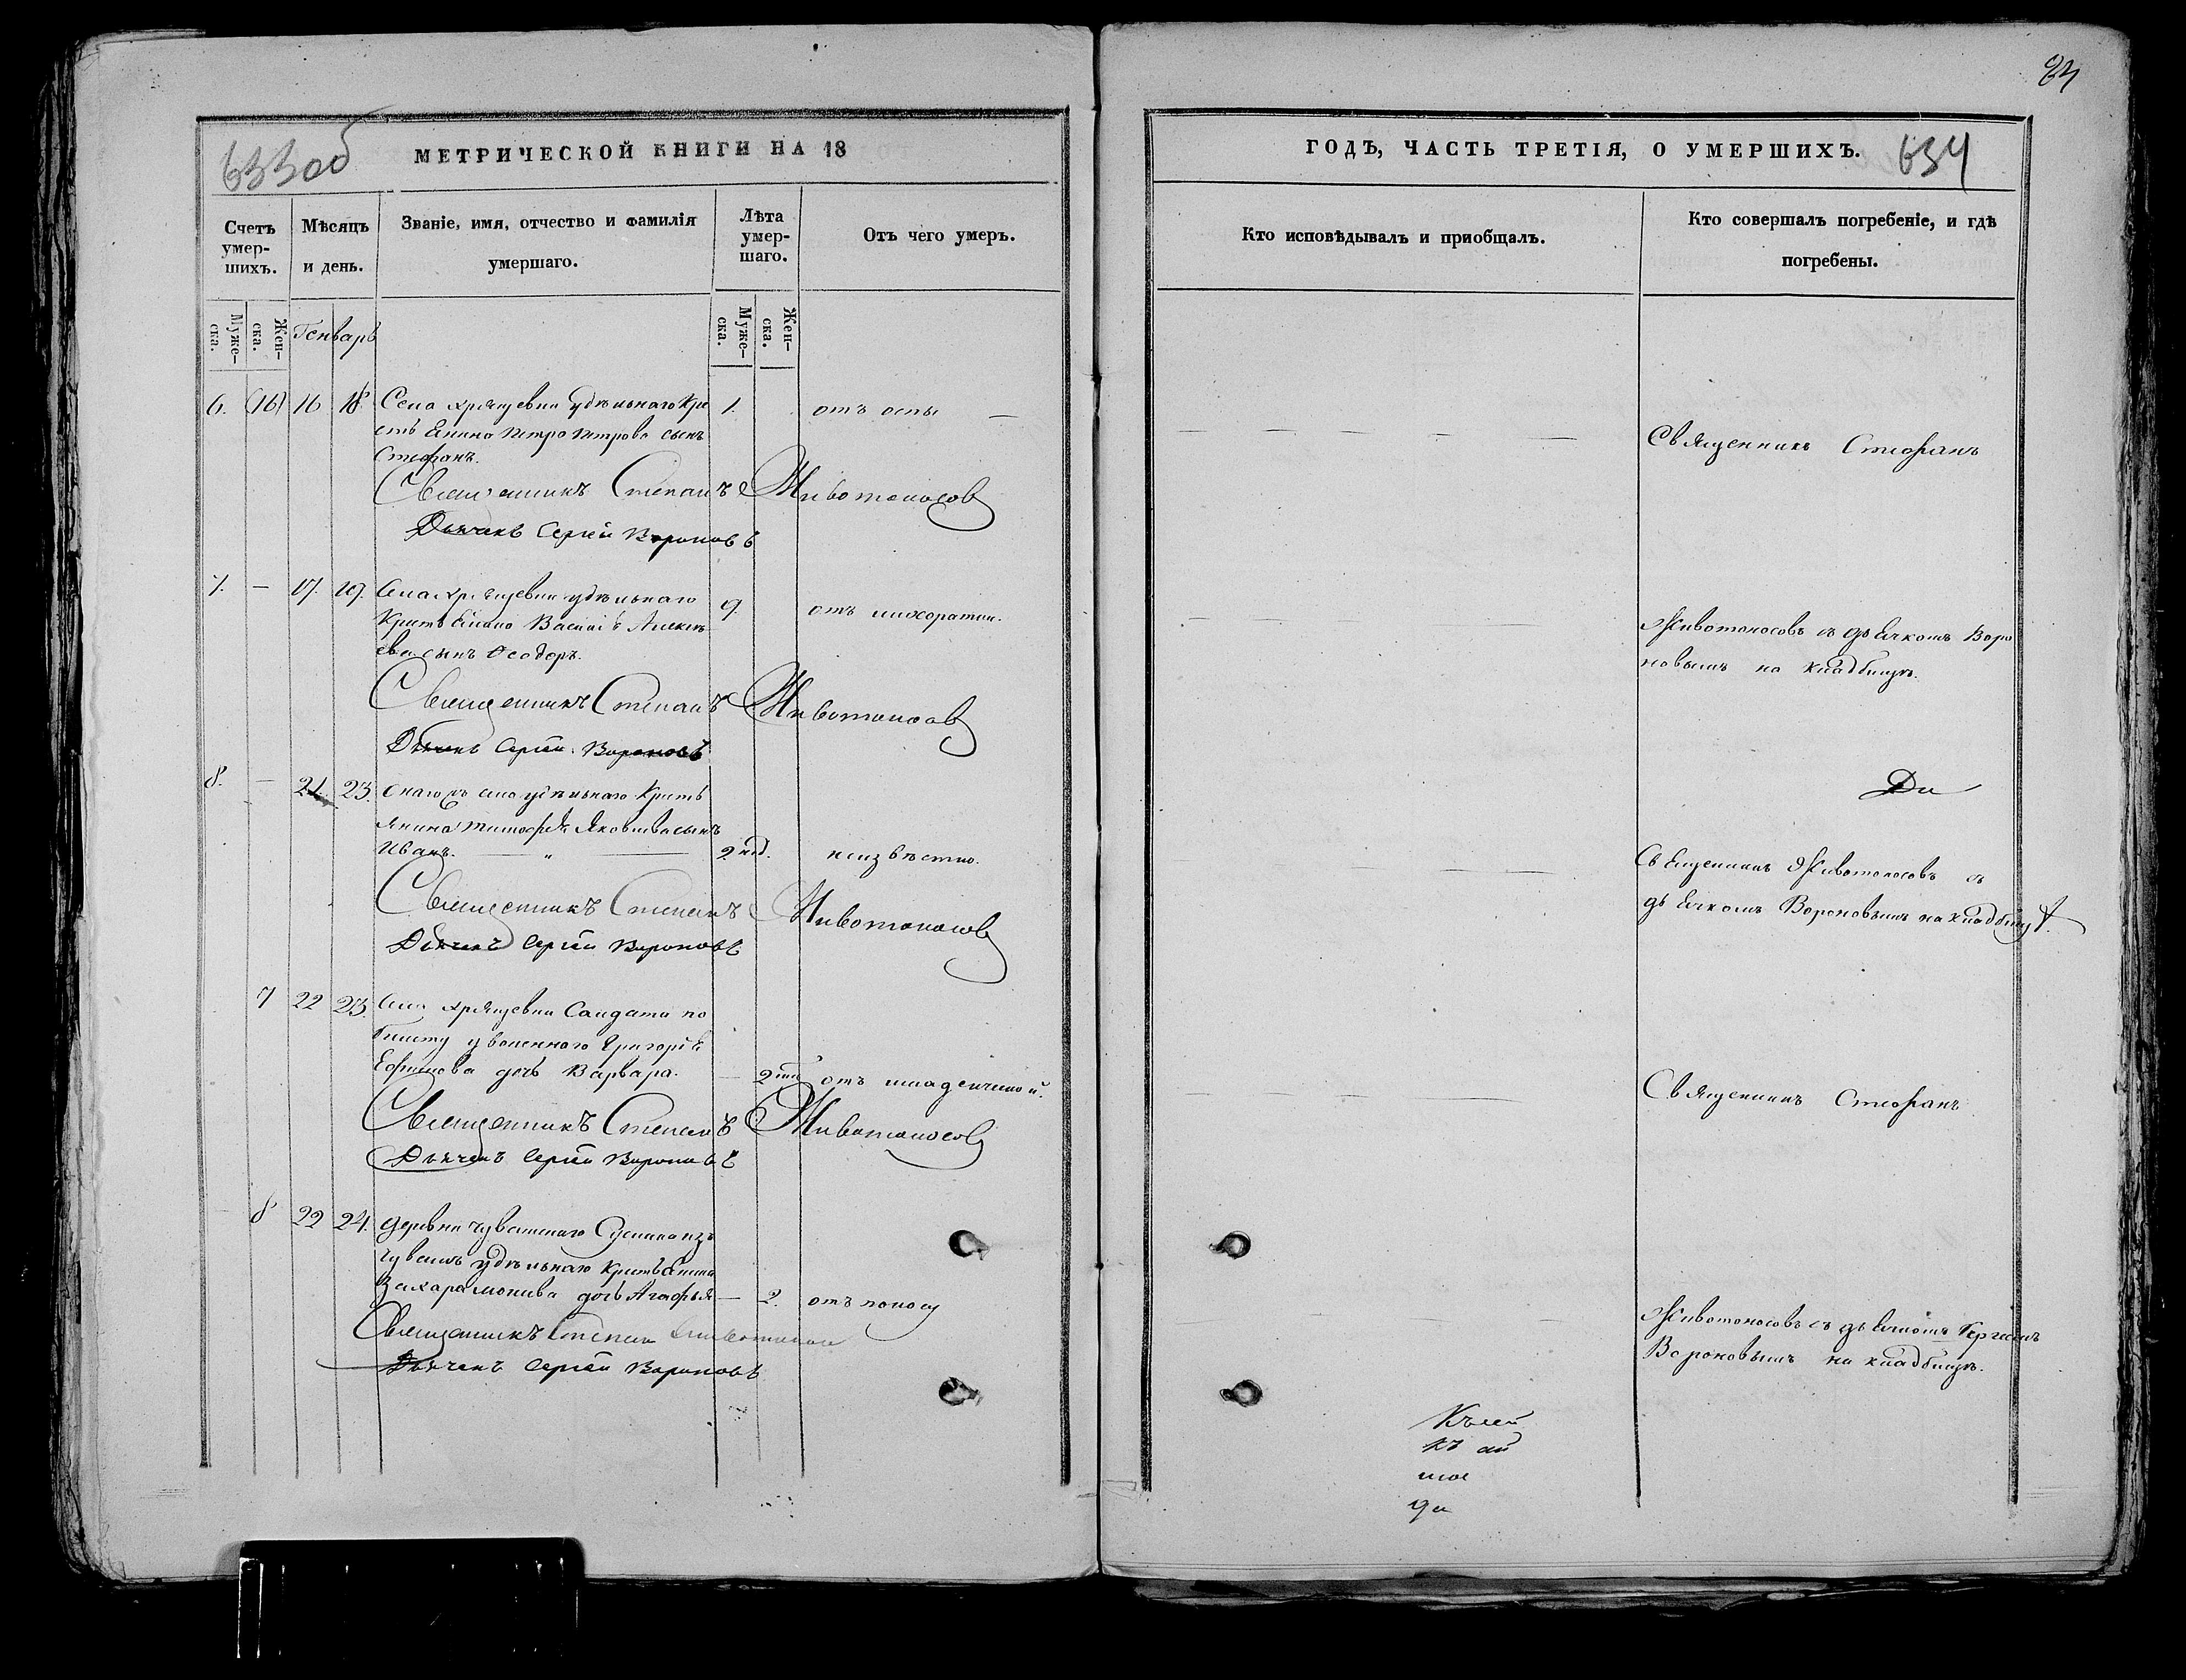 633об
МЕТРИЧЕСКОЙ КНИГИ НА 18
Счетъ умер-шихъ.
Мѣсяцъ и день.
Званіе, имя, отчество и фамилія умершаго.
Лѣта умер-шаго.
Отъ чего умеръ.
Муже-ска.
Жен-ска.
Генварь
Муже-ска.
Жен-ска.
6. (16) 16 18 Села Хрящевки удѣльнаго Кре 1. отъ оспы
стьянина Петра Петрова сынъ
Стефанъ.
Священникъ Степанъ Животоносов
Дьячекъ Сергѣй Вороновъ
7. — 17. 19. Села Хрящевки удѣльнаго 9.
Крестьянина Василія Алексѣ
ева сынъ Феодоръ.
Священникъ Степанъ Животоносов
Дьячекъ Сергѣй Вороновъ
8. — 21. 23. Онагожъ села удѣльнаго Кресть
янина Тимофея Яковлева сынъ
Иванъ. — „ — 2 нед. неизвѣстно.
Священникъ Степанъ Животоносов
Дьячекъ Сергѣй Вороновъ
7 22 23. Села Хрящевки Солдата по
билету уволеннаго Григорія
Ефимова дочь Варвара. — отъ младенческой.
Священникъ Степанъ Животоносов
Дьячекъ Сергѣй Вороновъ
8 22 24. деревни Чувашскаго Сускана изъ
чувашъ удѣльнаго Крестьянина
Захара дочь Агафья — 2. отъ поносу
Священникъ Степан
Дьячекъ Сергѣй Вороновъ
634
ГОДЪ, ЧАСТЬ ТРЕТІЯ, О УМЕРШИХЪ.
Кто исповѣдывалъ и приобщалъ.
Кто совершалъ погребеніе, и гдѣ погребены.
Священникъ Стефанъ
Животоносовъ съ дьячкомъ Воро
новымъ на кладбищѣ.
Священникъ Животоносовъ съ
дьячкомъ Вороновымъ на кладбищѣ.
Священникъ Стефанъ
Животоносовъ съ дьячкомъ Сергіемъ
Вороновымъ на кладбищѣ.